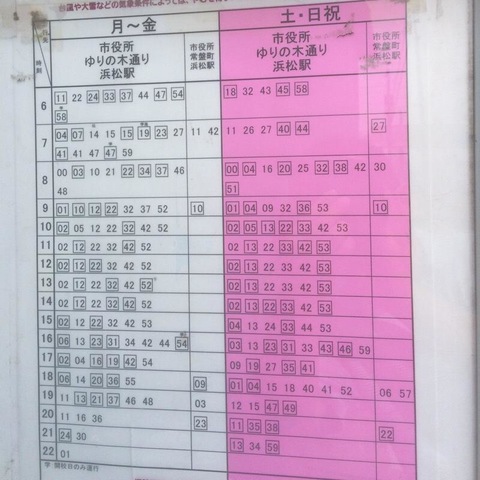 台風や大雪などの気象条件によっては、
月～金 土・日祝
時刻
市役所 ゆりの木通り 浜松駅 市役所 常盤町 浜松駅 市役所 ゆりの木通り 浜松駅 市役所 常盤町 浜松駅
6 11 22 24 33 37 44 47 54 18 32 43 45 58
58
7 04 07 14 15 15 19 23 27 11 42 11 26 27 40 44 27
41 41 47 47 59
8 00 03 10 21 22 34 37 46 00 04 16 20 25 32 38 42 30
48 51
9 01 10 12 22 32 37 52 10 01 04 09 32 36 53 10
10 02 05 12 22 32 42 53 02 05 13 22 33 42 53
11 02 12 22 32 42 52 02 13 22 33 42 53
12 02 12 22 32 42 52 02 13 22 33 42 53
13 02 12 22 32 42 52 02 13 22 33 42 53
14 02 12 22 32 42 52 02 13 22 33 42 53
15 02 12 22 32 42 53 04 13 24 33 44 53
16 06 13 23 31 34 42 44 54 03 13 23 31 33 43 46 59
17 02 04 16 19 42 54 09 19 27 35 41
18 06 14 20 36 55 09 01 04 15 18 40 41 52 06 57
19 11 13 21 37 46 48 03 12 15 47 49
20 11 16 36 23 11 35 38
21 24 30 22
22 01 13 34 59
学 開校日のみ運行